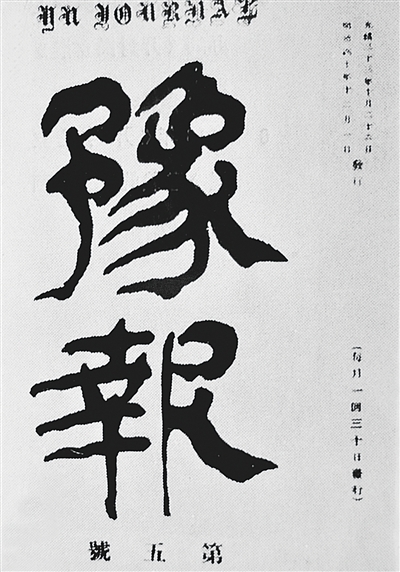 YU JOURNAL
光緒三十三年十月二十六日
明治四十年十二月一日
發行
(每月一回三十日發行)
豫報
第五號